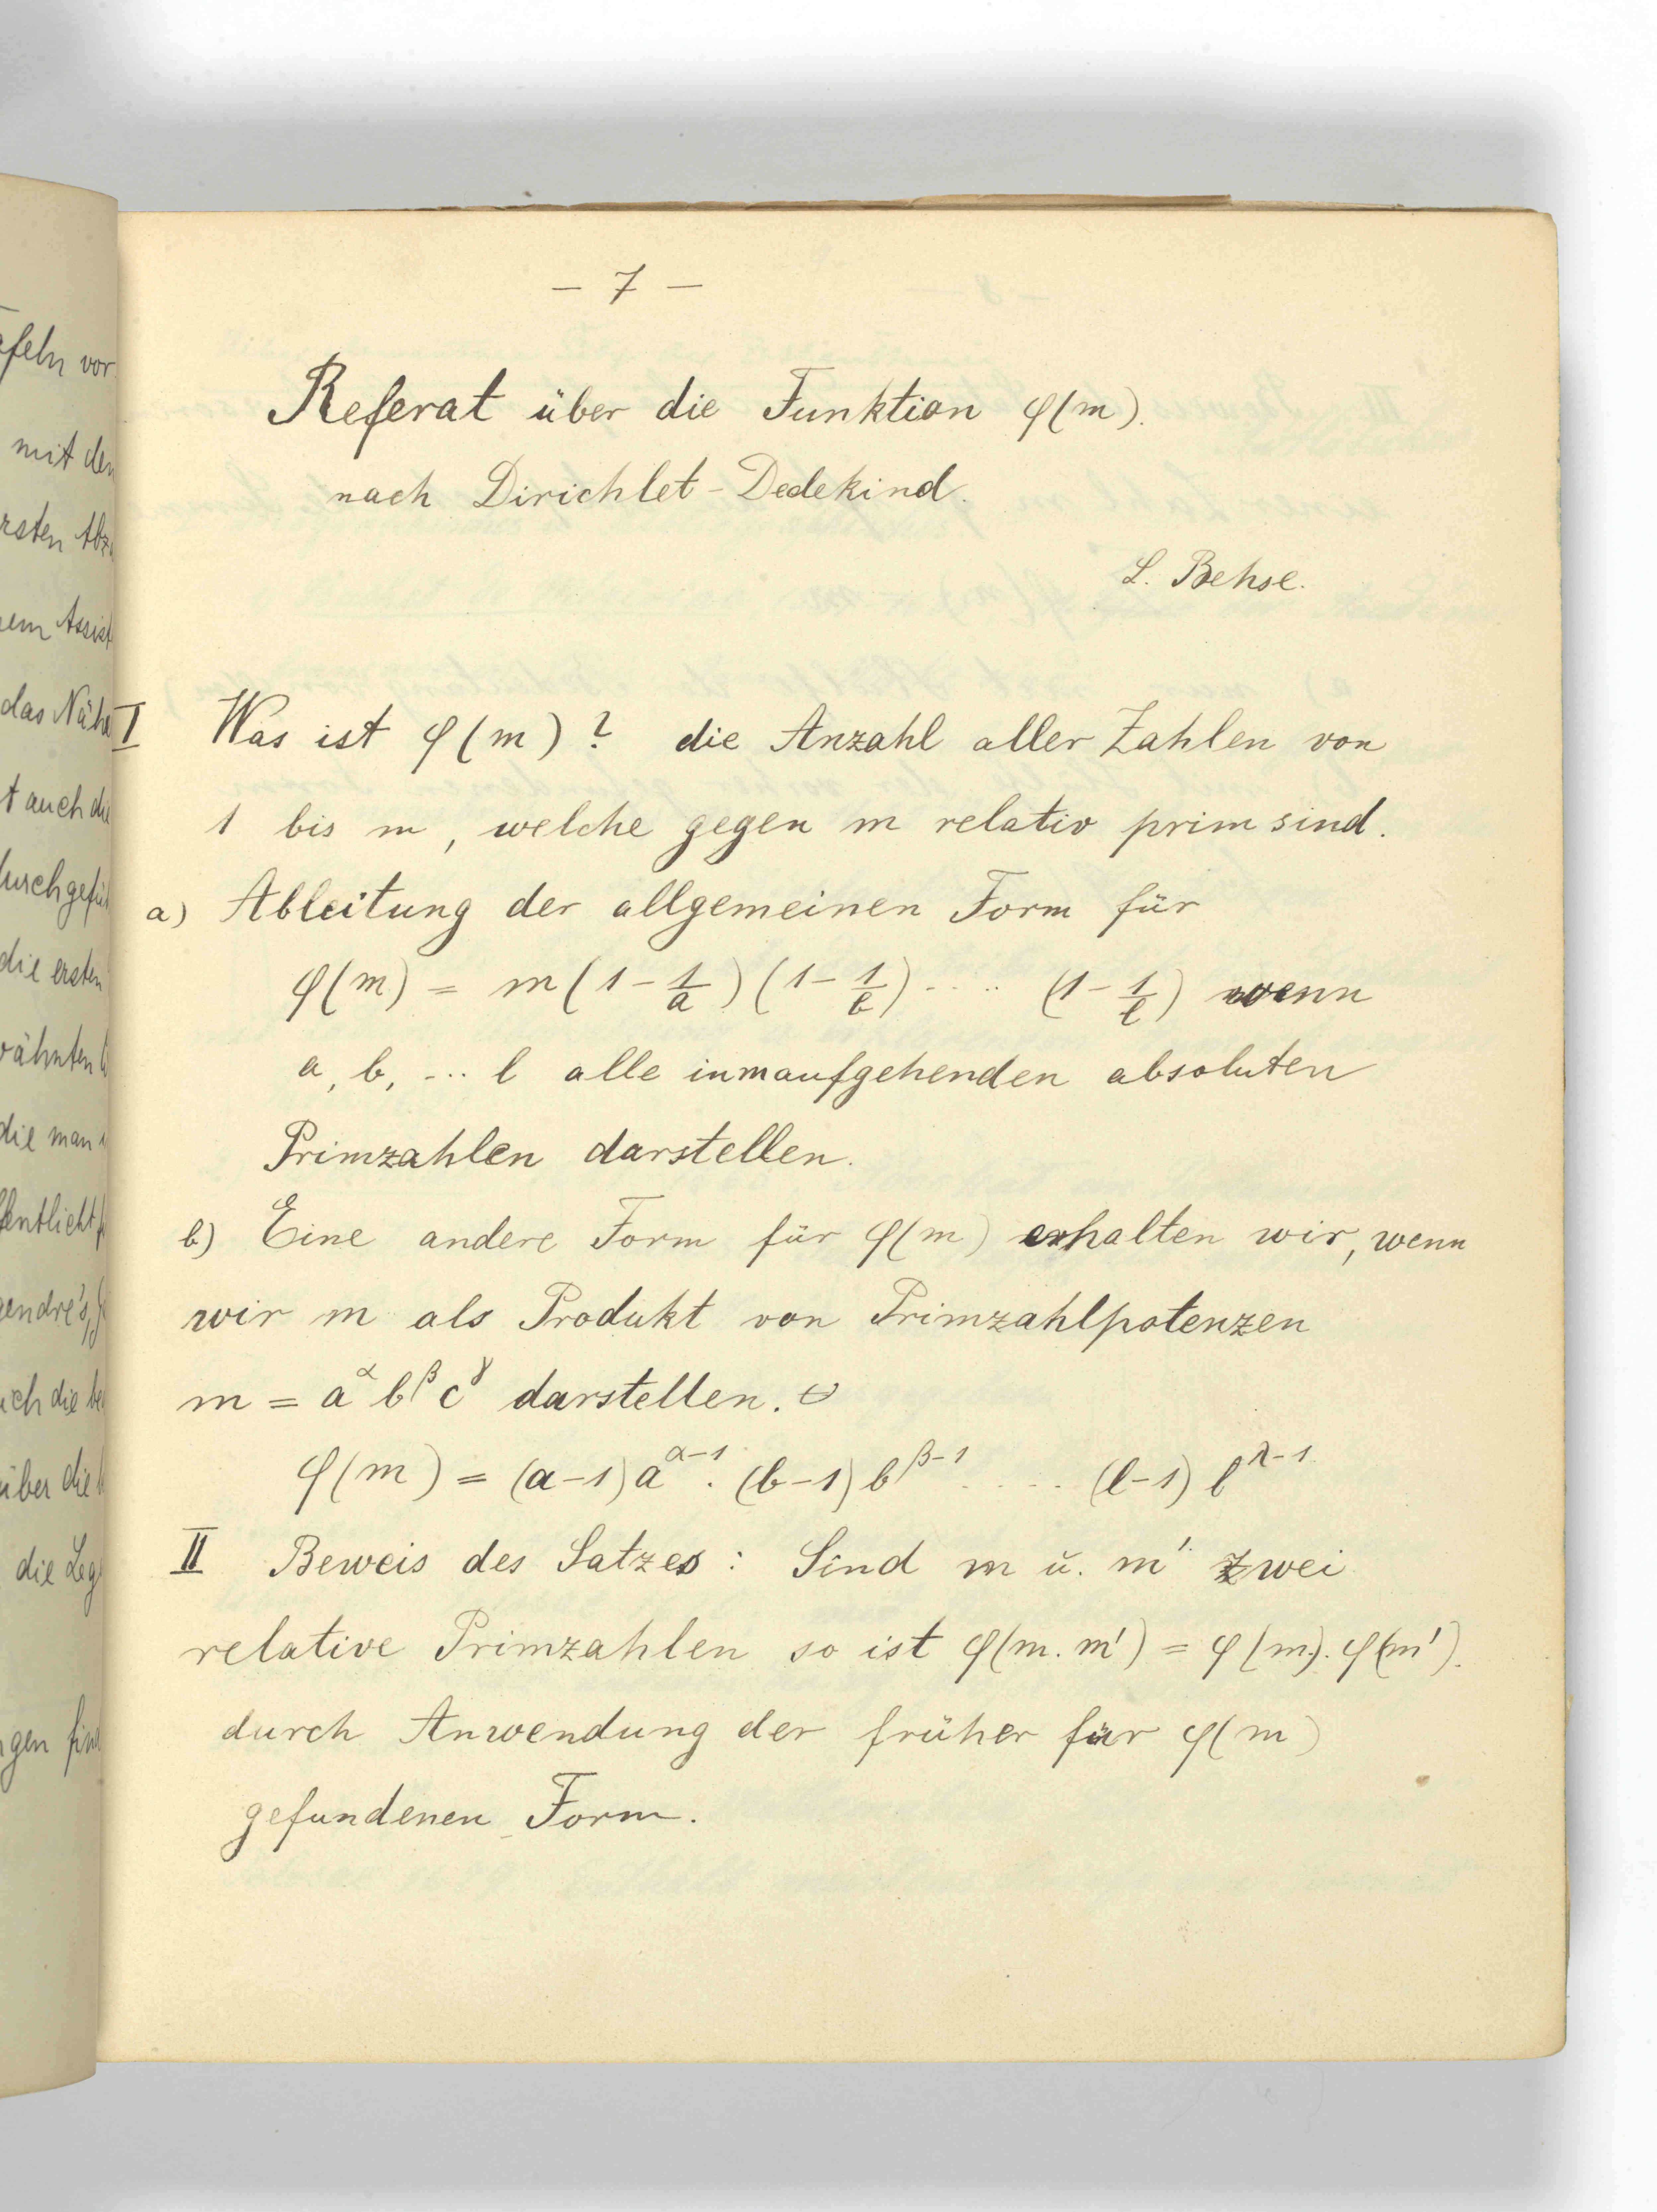 – 7 –
Referat über die Funktion φ(m).
nach Dirichlet-Dedekind.
L. Behse.
I Was ist φ(m)? die Anzahl aller Zahlen von
1 bis m, welche gegen m relativ prim sind.
a) Ableitung der allgemeinen Form für
φ(m) = m(1-1/a)(1-1/b)···· (1-1/l) wenn
a, b, ... l alle in m aufgehenden absoluten
Primzahlen darstellen.
b) Eine andere Form für φ(m) erhalten wir, wenn
wir m als Produkt von Primzahlpotenzen
m = a^α b^β c^γ darstellen.
φ(m) = (a-1)a^(α-1). (b-1)b^(β-1) .... (l-1) l^(λ-1)
II Beweis des Satzes: Sind m u. m' zwei
relative Primzahlen so ist φ(m.m') = φ(m).φ(m').
durch Anwendung der früher für φ(m)
gefundenen Form.
feln vor
mit den
rsten
das Näh
t auch die
die ersten
wähnten
die man
fentlicht
endre's,
ich die be
über die
die Leg
gen